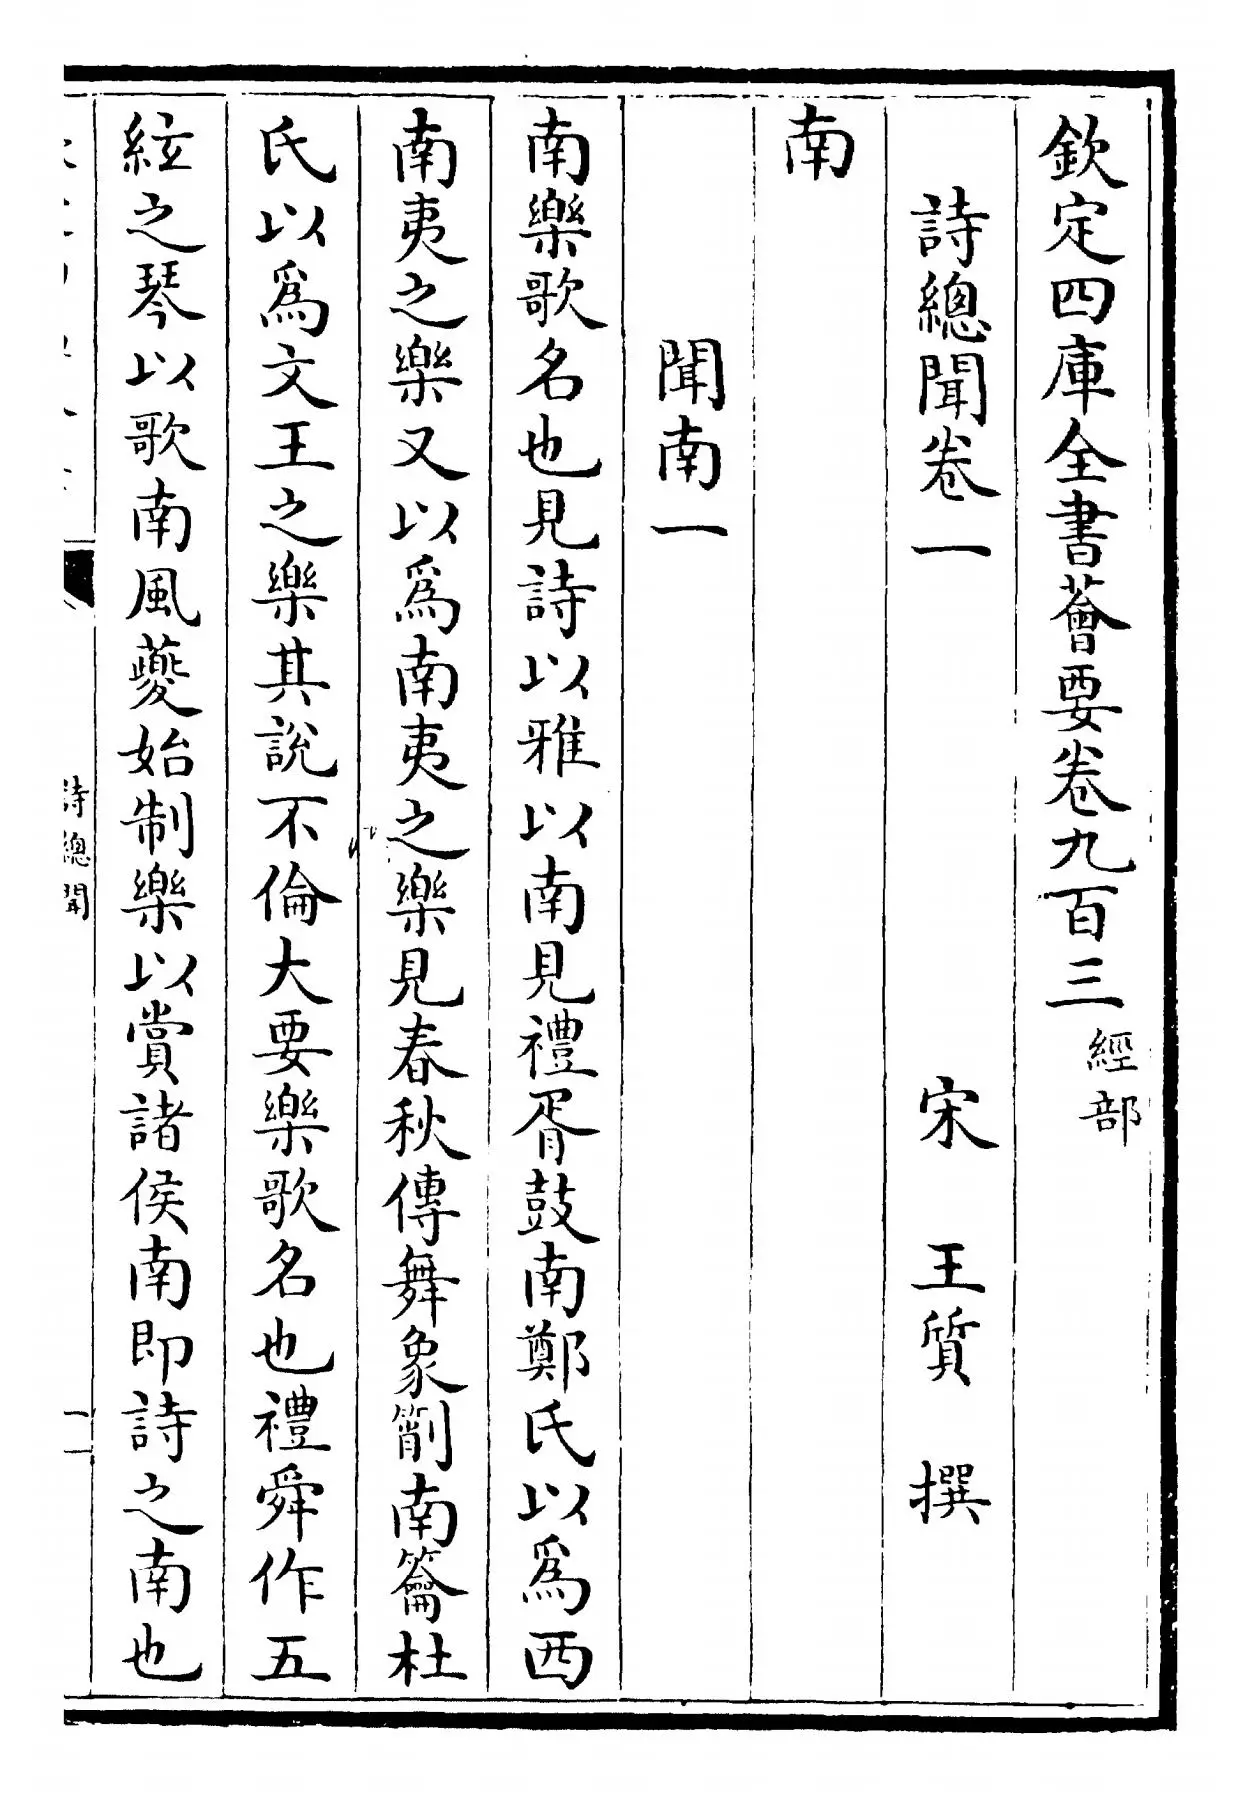 欽定四庫全書薈要卷九百三經部
詩總聞卷一 宋 王質 撰
南
聞南一
南樂歌名也見詩以雅以南見禮胥鼓南鄭氏以為西
南夷之樂又以為南夷之樂見春秋傳舞象箾南籥杜
氏以為文王之樂其說不倫大要樂歌名也禮舜作五
絃之琴以歌南風夔始制樂以賞諸侯南即詩之南也
詩總聞
一